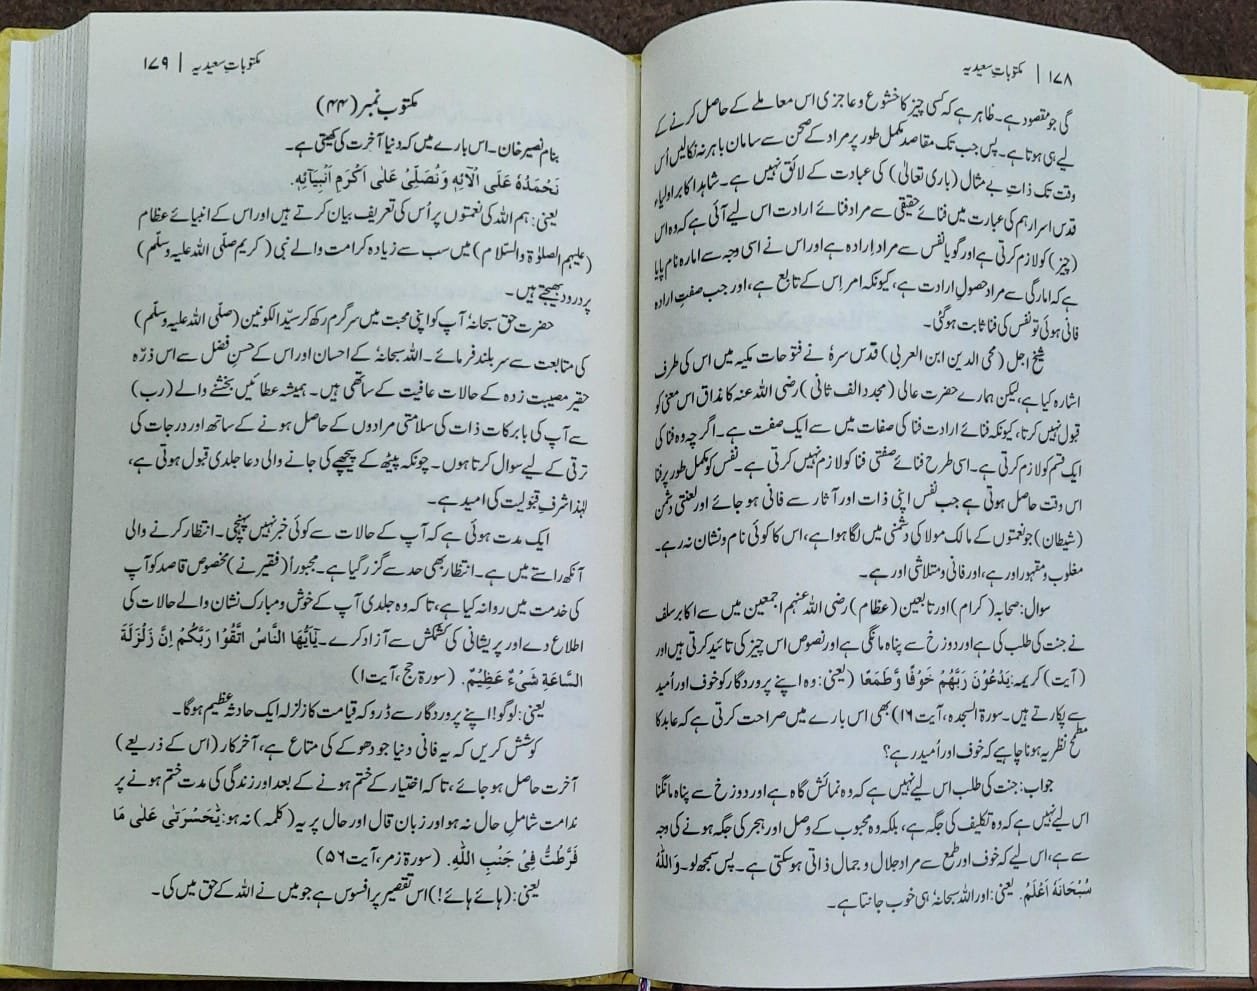 ۱۷۸ | مکتوباتِ سعیدیہ
گی جو مقصود ہے۔ ظاہر ہے کہ کسی چیز کا خشوع و عاجزی اس معاملے کے حاصل کرنے کے
لیے ہی ہوتا ہے۔ پس جب تک مقاصد مکمل طور پر مراد کے صحن سے سامان باہر نہ نکالیں اُس
وقت تک ذاتِ بے مثال (باری تعالیٰ) کی عبادت کے لائق نہیں ہے۔ شاہد اکابر اولیاء
قدس اسرارہم کی عبارت میں فنائے حقیقی سے مراد فنائے ارادت اس لیے آئی ہے کہ وہ اس
(چیز) کو لازم کرتی ہے اور گویا نفس سے مراد ارادہ ہے اور اس نے اسی وجہ سے امارہ نام پایا
ہے کہ امارگی سے مراد حصولِ ارادت ہے، کیونکہ امر اس کے تابع ہے، اور جب صفتِ ارادہ
فانی ہوئی تو نفس کی فنا ثابت ہوگئی۔
شیخ اجل (محی الدین ابن العربی) قدس سرہٗ نے فتوحات مکیہ میں اس کی طرف
اشارہ کیا ہے، لیکن ہمارے حضرت عالی (مجدد الف ثانی) رضی اللہ عنہ کا مذاق اس معنی کو
قبول نہیں کرتا، کیونکہ فنائے ارادت فنا کی صفات میں سے ایک صفت ہے۔ اگرچہ وہ فنا کی
ایک قسم کو لازم کرتی ہے۔ اسی طرح فنائے صفتی فنا کو لازم نہیں کرتی ہے۔ نفس کو مکمل طور پر فنا
اس وقت حاصل ہوتی ہے جب نفس اپنی ذات اور آثار سے فانی ہو جائے اور لعنتی دشمن
(شیطان) جو نعمتوں کے مالک مولا کی دشمنی میں لگا ہوا ہے، اس کا کوئی نام و نشان نہ رہے۔
مغلوب و مقہور اور ہے، اور فانی و متلاشی اور ہے۔
سوال: صحابہ (کرام) اور تابعین (عظام) رضی اللہ عنہم اجمعین میں سے اکابر سلف
نے جنت کی طلب کی ہے اور دوزخ سے پناہ مانگی ہے اور نصوص اس چیز کی تائید کرتی ہیں اور
(آیت) کریمہ: يَدْعُوْنَ رَبَّهُمْ خَوْفًا وَّطَمَعًا (یعنی: وہ اپنے پروردگار کو خوف اور اُمید
سے پکارتے ہیں۔ سورۃ السجدہ، آیت ۱۶) بھی اس بارے میں صراحت کرتی ہے کہ عابد کا
مطمح نظر یہ ہونا چاہیے کہ خوف اور اُمید رہے؟
جواب: جنت کی طلب اس لیے نہیں ہے کہ وہ نمائش گاہ ہے اور دوزخ سے پناہ مانگنا
اس لیے نہیں ہے کہ وہ تکلیف کی جگہ ہے، بلکہ وہ محبوب کے وصل اور ہجر کی جگہ ہونے کی وجہ
سے ہے، اس لیے کہ خوف اور طمع سے مراد جلال و جمال ذاتی ہو سکتی ہے۔ پس سمجھ لو۔ وَاللّٰهُ
سُبْحَانَهٗ اَعْلَمُ. یعنی: اور اللہ سبحانہٗ ہی خوب جانتا ہے۔
مکتوباتِ سعیدیہ | ۱۷۹
مکتوب نمبر (۴۴)
بنام نصیر خان۔ اس بارے میں کہ دنیا آخرت کی کھیتی ہے۔
نَحْمَدُهٗ عَلَى اٰلَآئِهٖ وَنُصَلِّىْ عَلٰى اَكْرَمِ اَنْبِيَآئِهٖ.
یعنی: ہم اللہ کی نعمتوں پر اُس کی تعریف بیان کرتے ہیں اور اس کے انبیائے عظام
(علیہم الصلوٰۃ والسّلام) میں سب سے زیادہ کرامت والے نبی (کریم صلّی اللہ علیہ وسلّم)
پر درود بھیجتے ہیں۔
حضرت حق سبحانہٗ آپ کو اپنی محبت میں سرگرم رکھ کر سیّد الکونین (صلّی اللہ علیہ وسلّم)
کی متابعت سے سر بلند فرمائے۔ اللہ سبحانہٗ کے احسان اور اس کے حسنِ فضل سے اس ذرّہ
حقیر مصیبت زدہ کے حالات عافیت کے ساتھ ہیں۔ ہمیشہ عطائیں بخشنے والے (رب)
سے آپ کی بابرکات ذات کی سلامتی مرادوں کے حاصل ہونے کے ساتھ اور درجات کی
ترقی کے لیے سوال کرتا ہوں۔ چونکہ پیٹھ کے پیچھے کی جانے والی دعا جلدی قبول ہوتی ہے،
لہٰذا شرفِ قبولیت کی امید ہے۔
ایک مدت ہوئی ہے کہ آپ کے حالات سے کوئی خبر نہیں پہنچی۔ انتظار کرنے والی
آنکھ راستے میں ہے۔ انتظار بھی حد سے گزر گیا ہے۔ مجبوراً (فقیر نے) مخصوص قاصد کو آپ
کی خدمت میں روانہ کیا ہے، تاکہ وہ جلدی آپ کے خوش و مبارک نشان والے حالات کی
اطلاع دے اور پریشانی کی کشمکش سے آزاد کرے۔ يٰٓاَيُّهَا النَّاسُ اتَّقُوْا رَبَّكُمْ اِنَّ زَلْزَلَةَ
السَّاعَةِ شَىْءٌ عَظِيْمٌ. (سورۃ حج، آیت ۱)
یعنی: لوگو! اپنے پروردگار سے ڈرو کہ قیامت کا زلزلہ ایک حادثہ عظیم ہوگا۔
کوشش کریں کہ یہ فانی دنیا جو دھوکے کی متاع ہے، آخرکار (اس کے ذریعے)
آخرت حاصل ہو جائے، تاکہ اختیار کے ختم ہونے کے بعد اور زندگی کی مدت ختم ہونے پر
ندامت شاملِ حال نہ ہو اور زبانِ قال اور حال پر یہ (کلمہ) نہ ہو: يٰحَسْرَتٰى عَلٰى مَا
فَرَّطْتُّ فِىْ جَنْبِ اللّٰهِ. (سورۃ زمر، آیت ۵۶)
یعنی: (ہائے ہائے!) اس تقصیر پر افسوس ہے جو میں نے اللہ کے حق میں کی۔